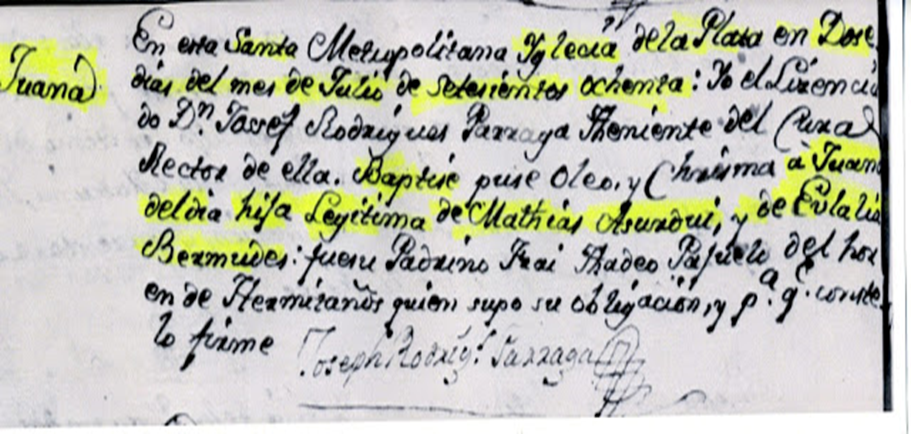 Juana
En esta Santa Metropolitana Yglecia de la Plata en Dose
dias del mes de Julio de setesientos ochenta: Yo el Lizencia
do Dn. Jossef Rodrigues Parraga Theniente del Cura
Rector de ella. Baptisé puse Oleo, y Chrisma à Juana
del dia hija Legitima de Mathias Asurdui, y de Eulalia
Bermudes: fuesu Padrino Frai Thadeo del hor
en de Hermitaños quien supo su obligación, y pa. qe. conste
lo firme Joseph Rodrigs. Parraga